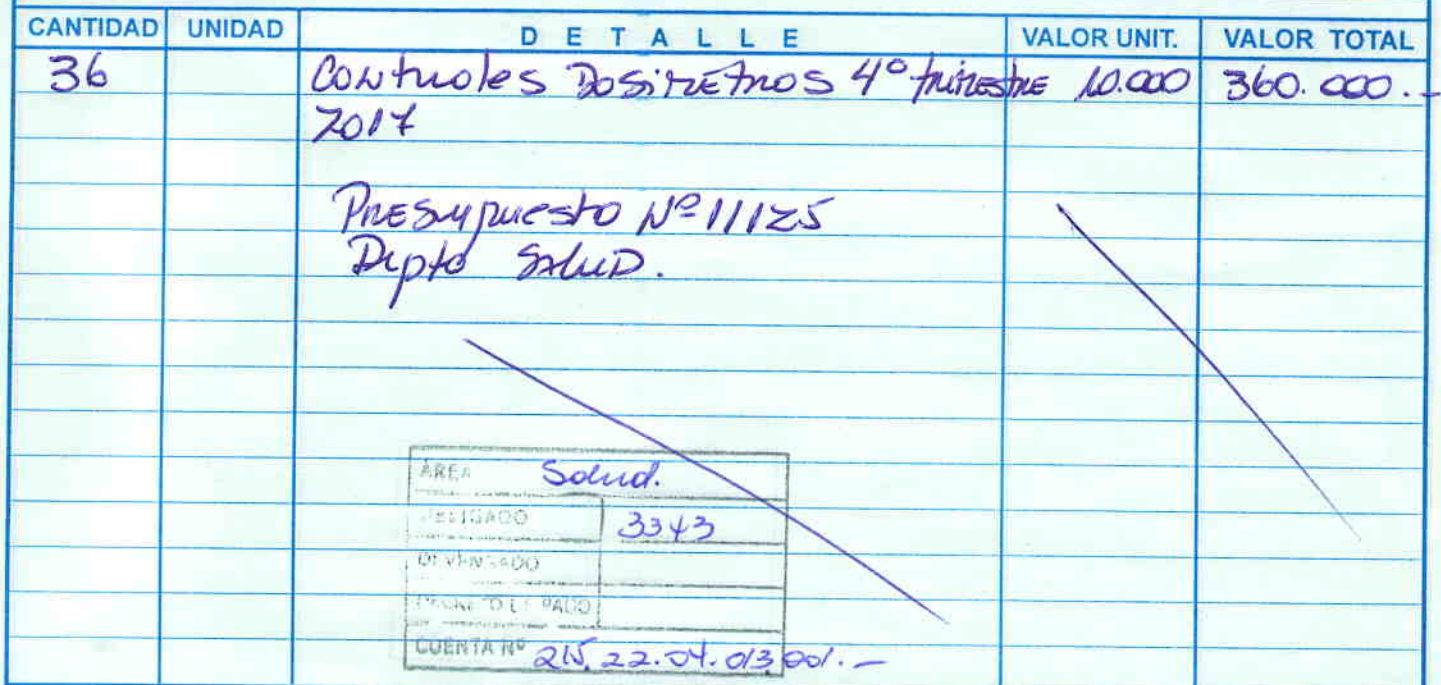 CANTIDAD UNIDAD DETALLE VALOR UNIT. VALOR TOTAL
36 Controles Dosimetros 4º trimestre 10.000 360.000.-
2017
Presupuesto Nº 11125
Dipto Salud.
AREA Salud.
OBLIGADO 3343
DEVENGADO
DECRETO DE PAGO
CUENTA Nº 215.22.04.013.001.-